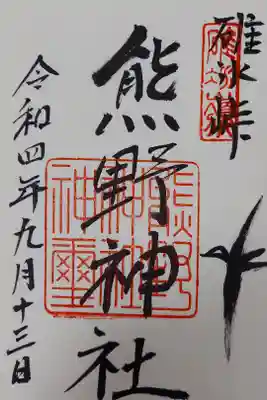 碓氷峠
熊野神社
熊野
神社
神璽
令和四年九月十三日